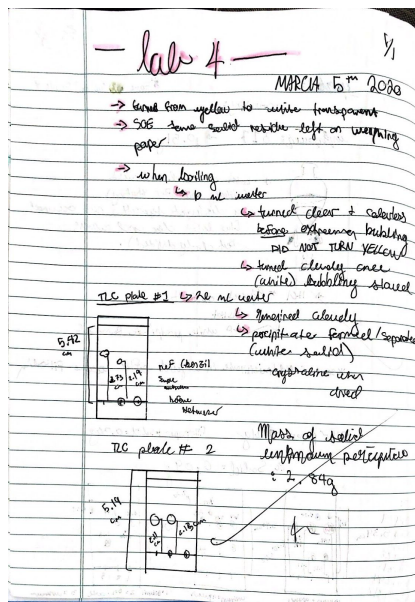 — lab 4 —
1/1
MARCH 5th 2020
→ turned from yellow to white transparent
→ some solid residue left on weighing
paper
→ when boiling
↳ 10 mL water
↳ turned clear & colorless
before extreme bubbling
DID NOT TURN YELLOW
↳ turned cloudy once
(white) bubbling started
TLC plate #1 ↳ 20 mL water
↳ remained cloudy
↳ percipitate formed/separated
(white solid)
- crystaline when
dried
5.42
cm
2.73
cm
2.19
cm
TLC plate # 2
Mass of solid
unknown
: 2.84g
5.19
cm
2.13 cm